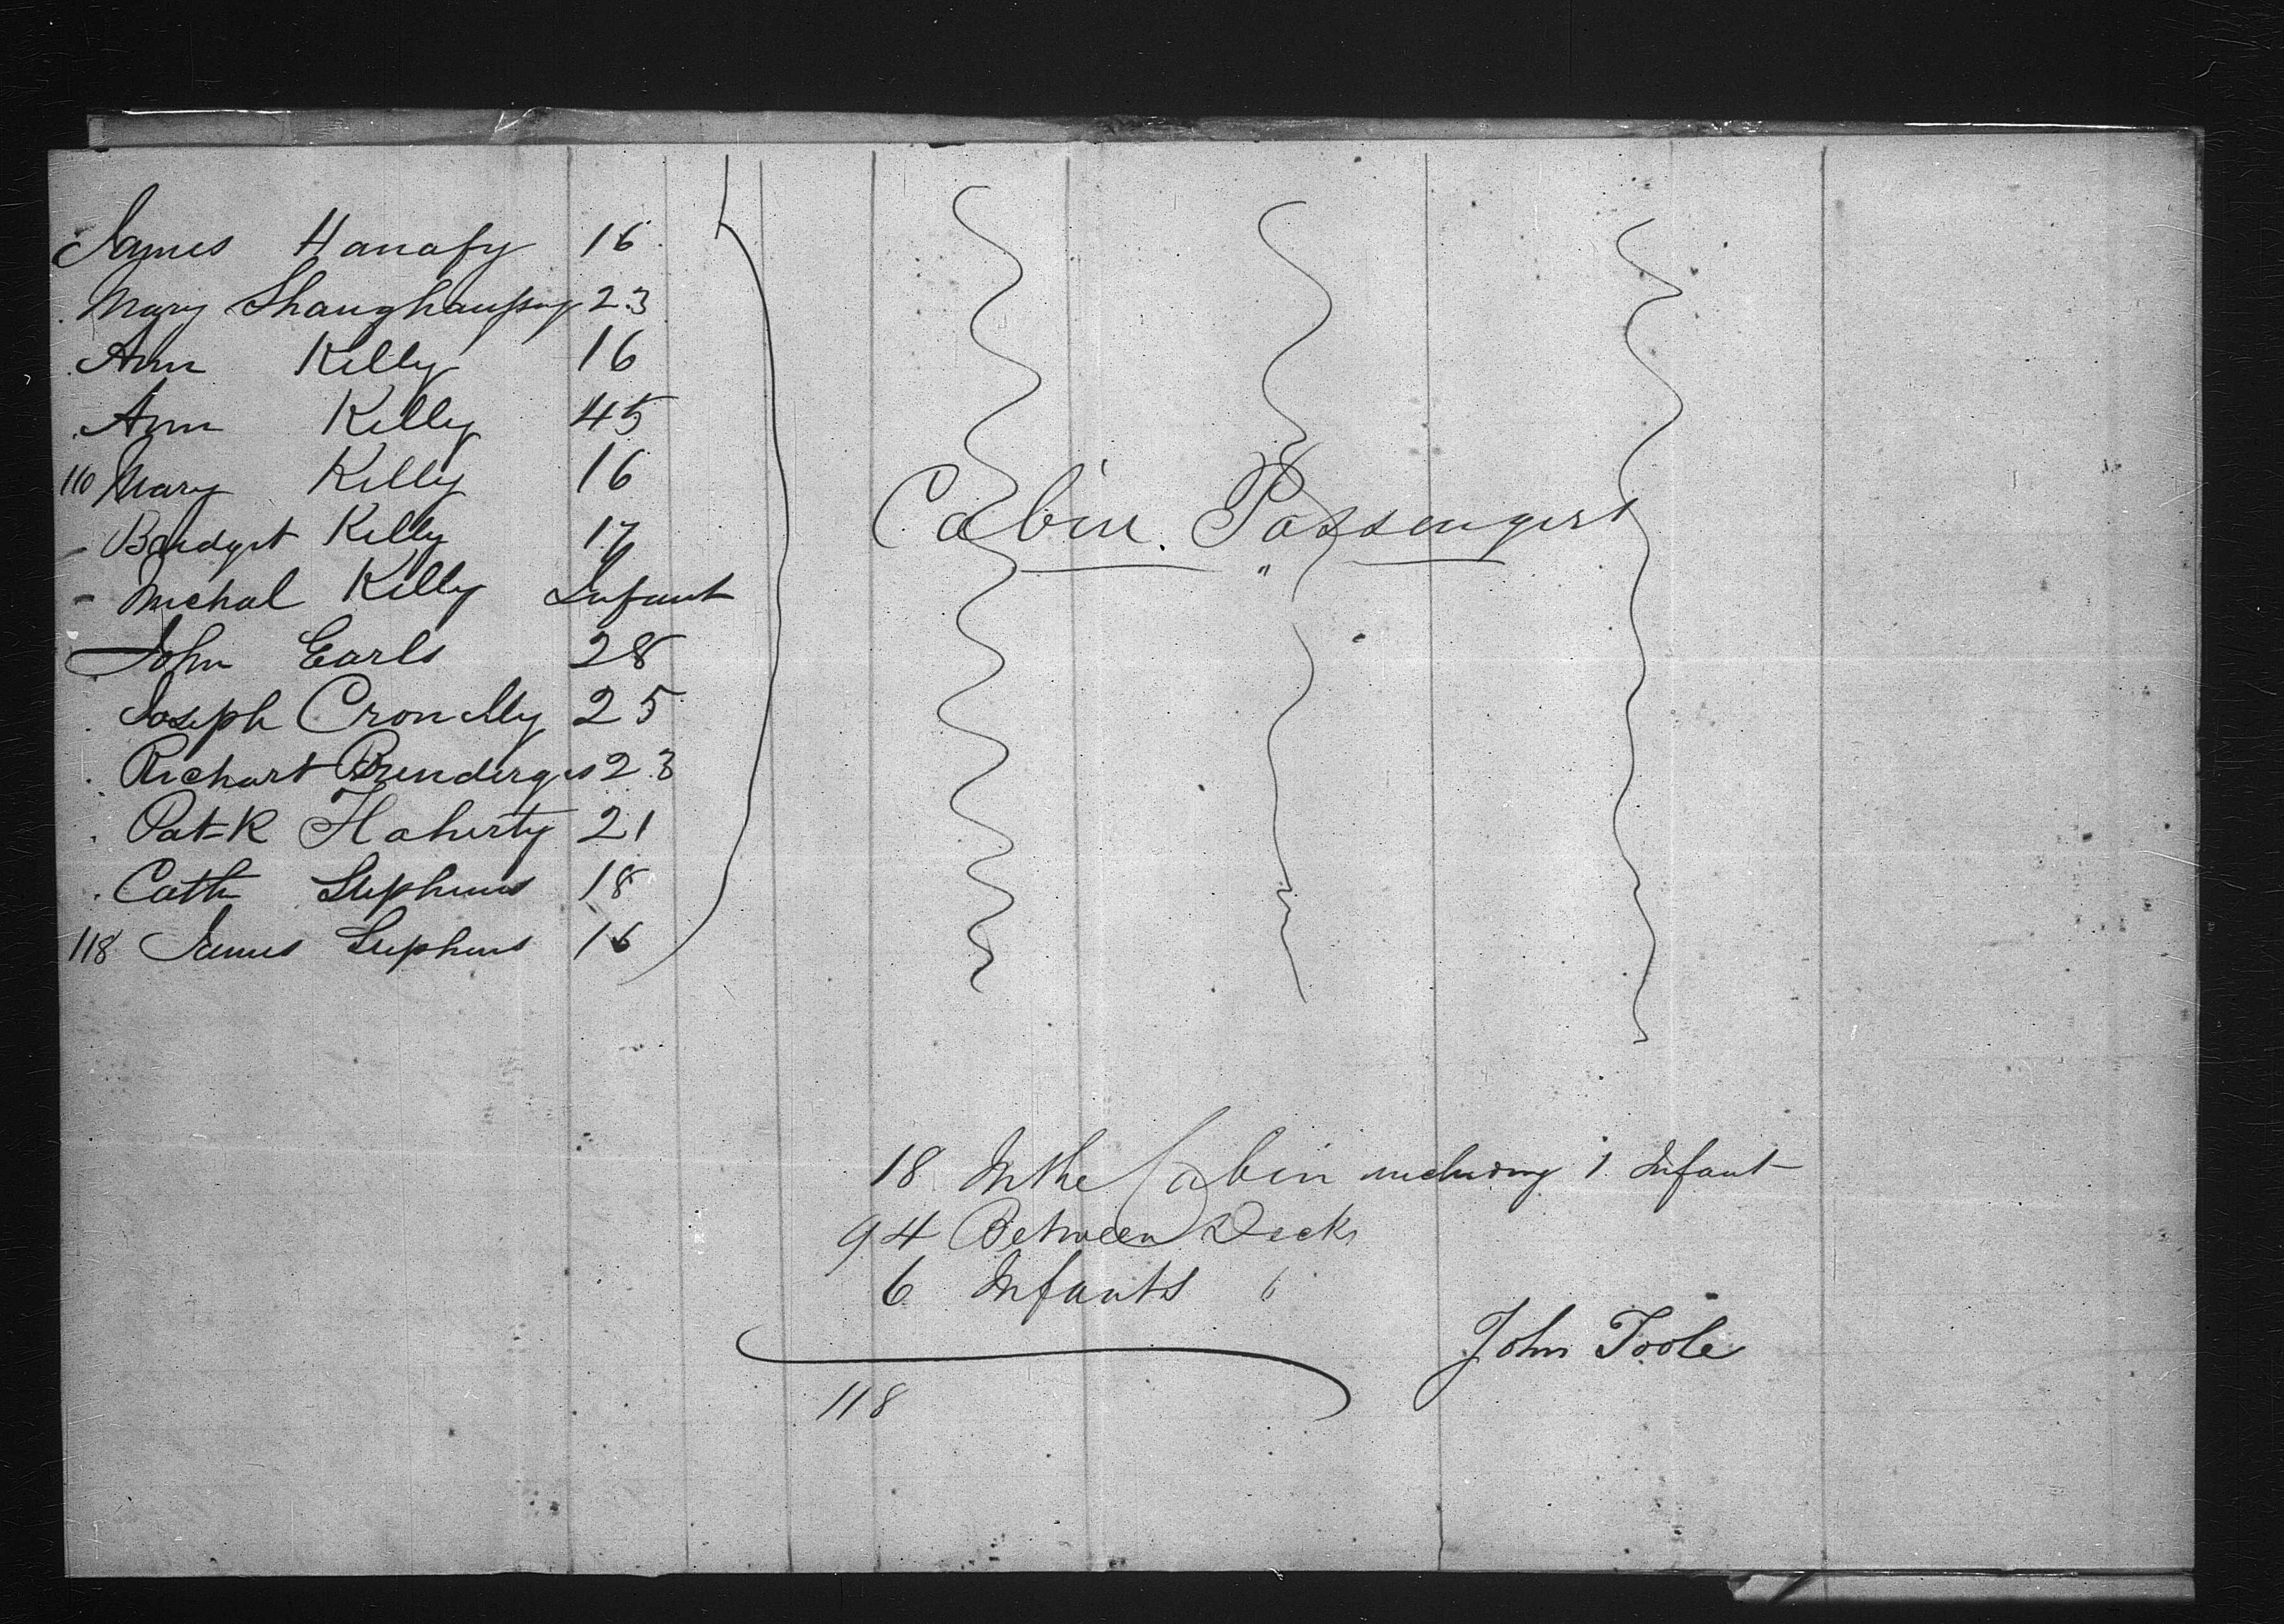 James Hanafy 16
Mary Shaughaussny 23
Ann Killy 16
Ann Killy 45
110 Mary Killy 16
Bridgit Killy 17
Michal Killy Infant
John Earls 28
Joseph Cronelly 25
Richart Prendirgis 23
Pat-k Flaherty 21
Cath Stephens 18
118 James Stephens 16
Cabin Passengers
18 In the Cabin including 1 Infant
94 Between Decks
6 Infants "
118
John Toole